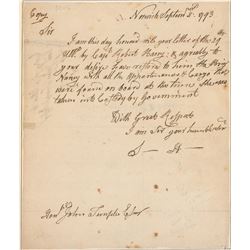 Copy
Norwich Septem 5. 1793
Sir
I am this day honord with your letter of the 29th
Ulto by Capt Robert & agreably to
your desire have restord to him, the Brig
Nancy with all the Appurtenances & Cargo that
were found on board at the time she was
taken into Custody by Government
With Great Respect
I am Sir your humble servt
S— H—
Honl John Temple Esqr